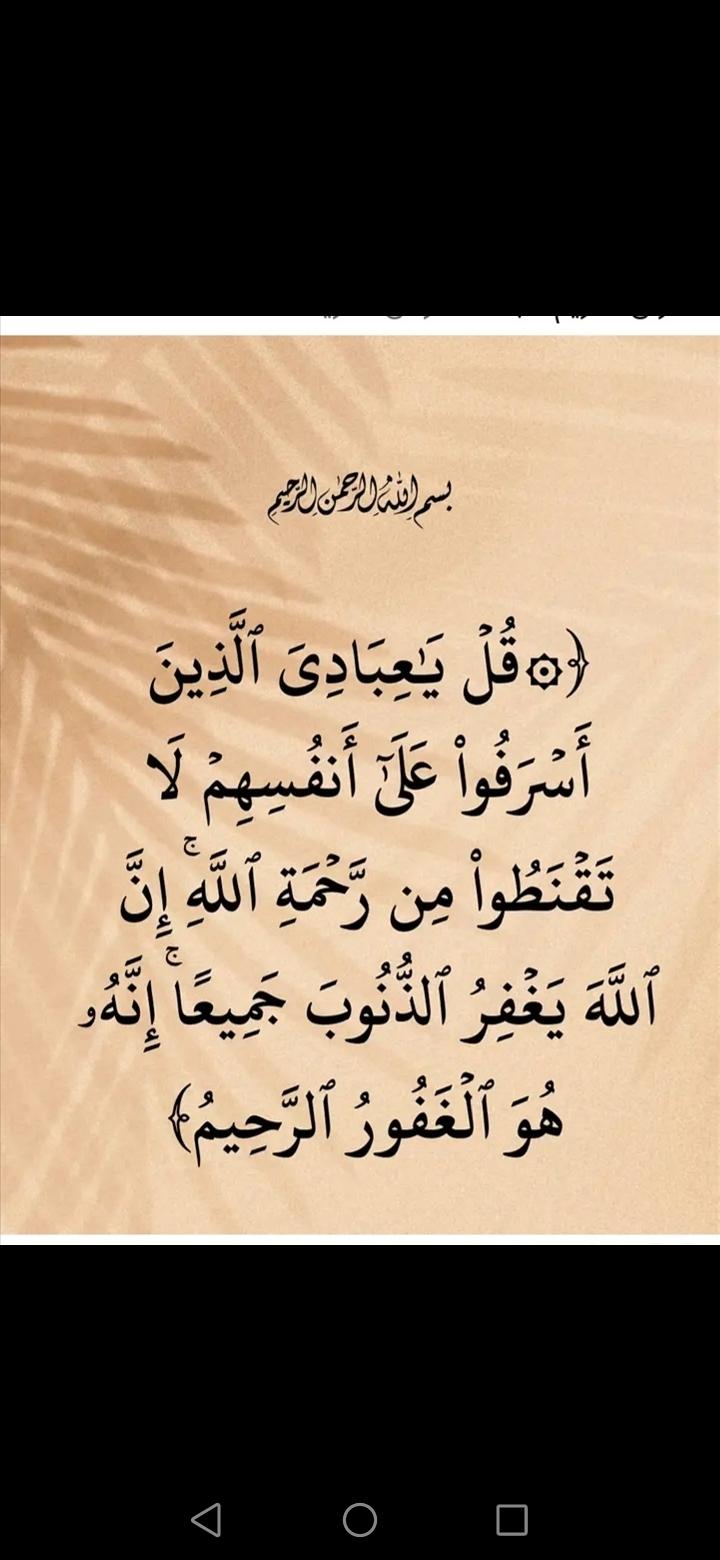 بسم الله الرحمن الرحيم
﴿۞ قُلۡ يَٰعِبَادِيَ ٱلَّذِينَ
أَسۡرَفُواْ عَلَىٰٓ أَنفُسِهِمۡ لَا
تَقۡنَطُواْ مِن رَّحۡمَةِ ٱللَّهِۚ إِنَّ
ٱللَّهَ يَغۡفِرُ ٱلذُّنُوبَ جَمِيعًاۚ إِنَّهُۥ
هُوَ ٱلۡغَفُورُ ٱلرَّحِيمُ﴾